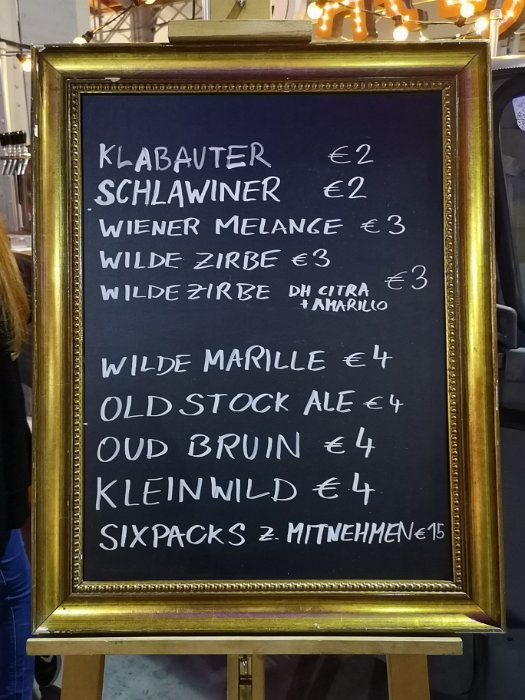 KLABAUTER €2
SCHLAWINER €2
WIENER MELANGE €3
WILDE ZIRBE €3
WILDE ZIRBE DH CITRA + AMARILLO €3
WILDE MARILLE €4
OLD STOCK ALE €4
OUD BRUIN €4
KLEINWILD €4
SIXPACKS Z. MITNEHMEN €15